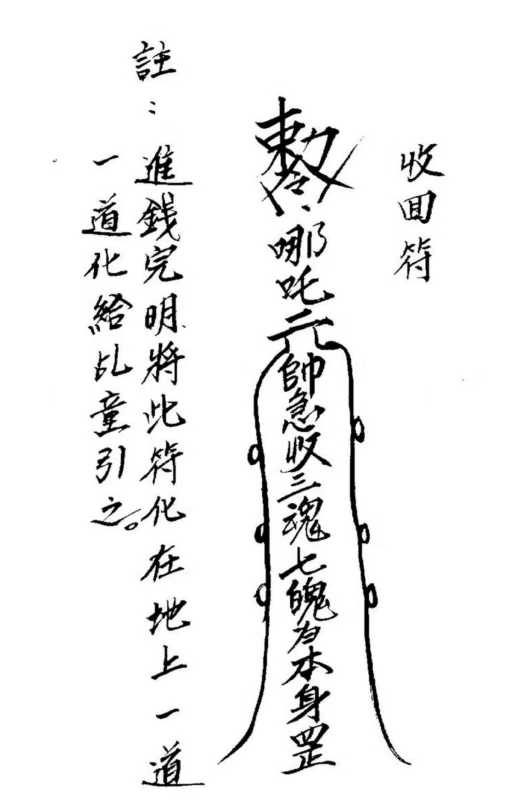 收回符
敕令哪吒元帥急收三魂七魄為本身罡
註：進錢完明將此符化在地上一道
一道化給乩童引之。